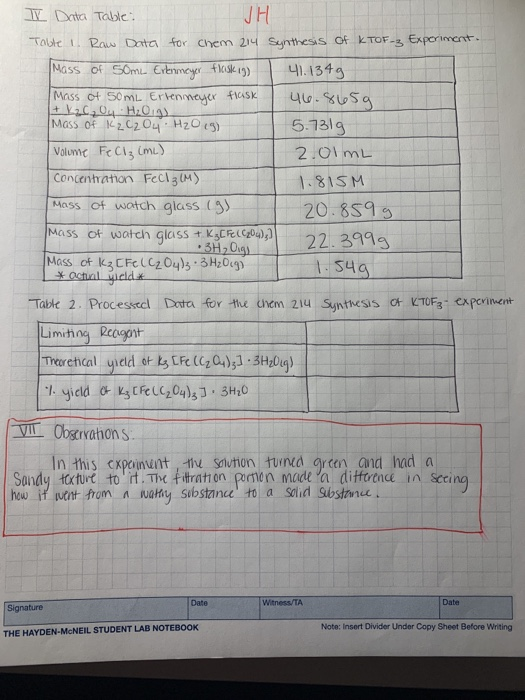 IV Data Table:
JH
Table 1. Raw Data for Chem 214 Synthesis of KTOF-3 Experiment.
Mass of 50mL Erlenmeyer flask (g) 41.134g
Mass of 50mL Erlenmeyer flask + K2C2O4 · H2O(g) 46.865g
Mass of K2C2O4 · H2O (g) 5.731g
Volume FeCl3 (mL) 2.01mL
Concentration FeCl3 (M) 1.815M
Mass of watch glass (g) 20.859g
Mass of watch glass + K3[Fe(C2O4)3] · 3H2O(g) 22.399g
Mass of K3[Fe(C2O4)3 · 3H2O(g) * actual yield * 1.54g
Table 2. Processed Data for the Chem 214 Synthesis of KTOF3- experiment
Limiting Reagent
Theoretical yield of K3[Fe(C2O4)3] · 3H2O(g)
% yield of K3[Fe(C2O4)3] · 3H2O
VII Observations
In this experiment, the solution turned green and had a
Sandy texture to it. The filtration portion made a difference in seeing
how it went from a wathy substance to a solid substance.
Signature
Date
Witness/TA
Date
THE HAYDEN-McNEIL STUDENT LAB NOTEBOOK
Note: Insert Divider Under Copy Sheet Before Writing